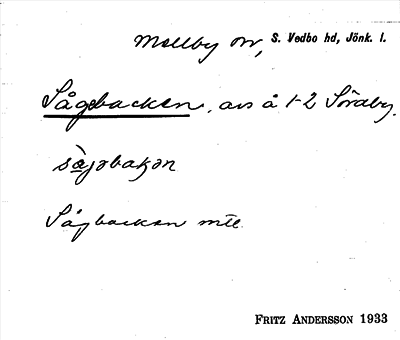 Mellby sn, S. Vedbo hd, Jönk. l.
Sågebacken, avs å 1-2 Söraby.
sàgəbakən
Sågbacken mtl
FRITZ ANDERSSON 1933